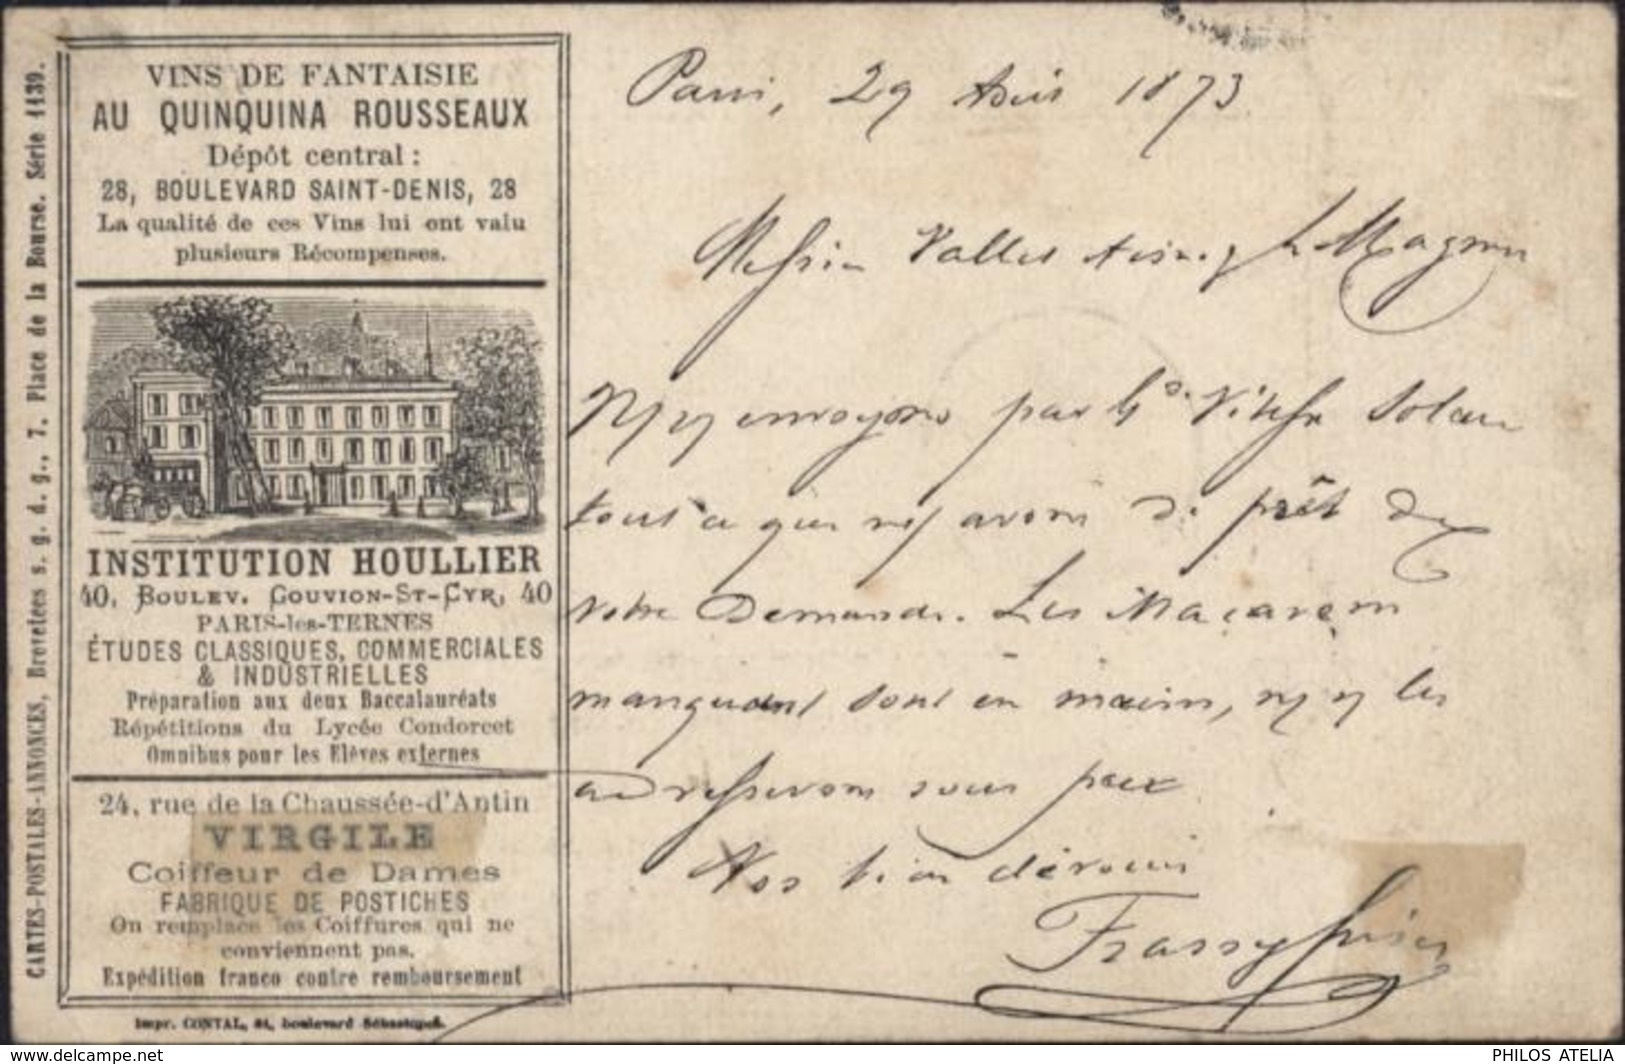 CARTES-POSTALES-ANNONCES, Brevetées s. g. d. g., 7. Place de la Bourse. Série 1139.
VINS DE FANTAISIE
AU QUINQUINA ROUSSEAUX
Dépôt central :
28, BOULEVARD SAINT-DENIS, 28
La qualité de ces Vins lui ont valu
plusieurs Récompenses.
INSTITUTION HOULLIER
40, BOULEV. GOUVION-ST-CYR, 40
PARIS-les-TERNES
ÉTUDES CLASSIQUES, COMMERCIALES
& INDUSTRIELLES
Préparation aux deux Baccalauréats
Répétitions du Lycée Condorcet
Omnibus pour les Elèves externes
24, rue de la Chaussée-d'Antin
VIRGILE
Coiffeur de Dames
FABRIQUE DE POSTICHES
On remplace les Coiffures qui ne
conviennent pas.
Expédition franco contre remboursement
Impr. CONTAL, boulevard Sébastopol.
Paris, 29 1873
Valles
envoyons par
tout ce que avons de prêt de
votre Demande. Les Macarons
manquant sont en mains, les
adresserons sous peu
Vos bien dévoués
PHILOS ATELIA
www.delcampe.net